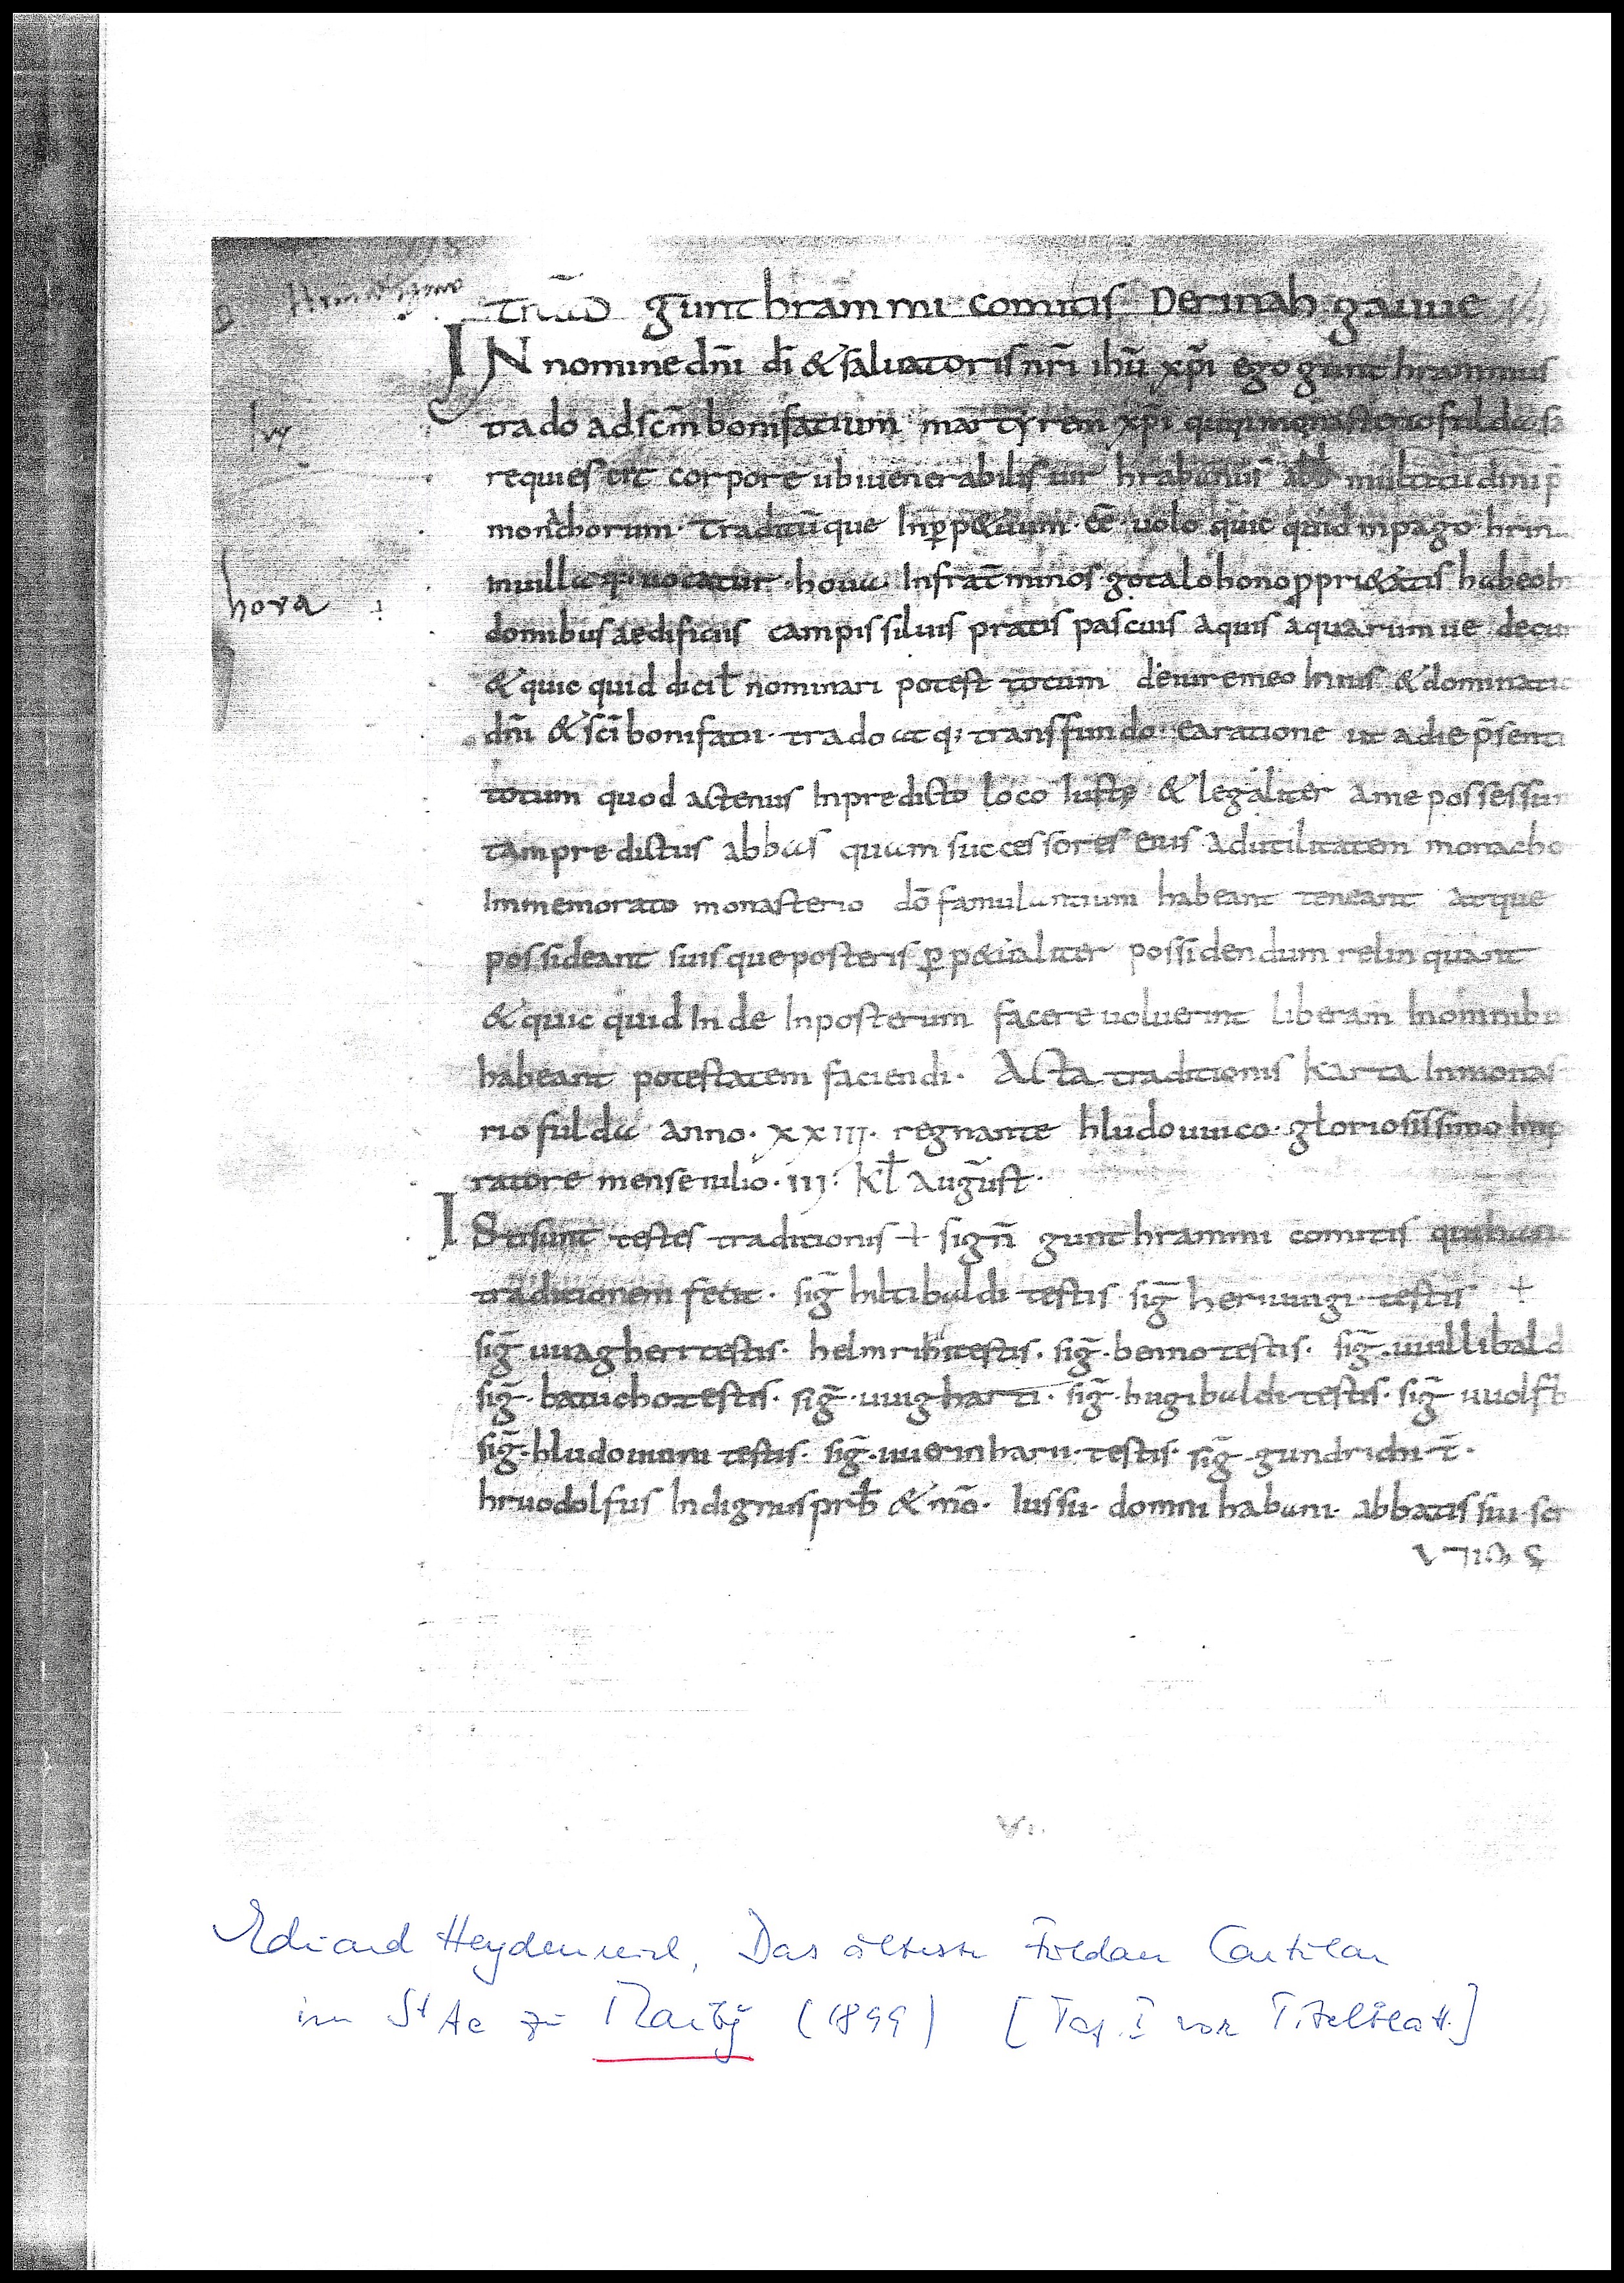 trad̄ gunthrammi comitis De rinahgauue
IN nomine dn̄i dī & saluatoris nr̄i ihū xp̄i ego gunthrammus
trado ad scm̄ bonifatium martyrem xp̄i qui in monasterio fulda sa
requiescit corpore ubi uenerabilis uir hrabanus abb multitudini p̄
hora
monachorum · traditū que In ꝑp&uum · eē · uolo quic quid in pago · hrin
In uilla q: uocatur · houa · Infra t̄minos · gotalohono ꝓpri&atis habeo In
domibus aedificiis campis siluis pratis pascuis aquis aquarum ue decur
& quic quid dici ł nominari potest totum de iure meo In ius & dominatio
dn̄i & sc̄i bonifatii · trado atq; transfundo · ea ratione ut a die p̄senti
totum quod actenus In predicto loco Iuste & legaliter a me possessum
tam predictus abbas quam successores eius ad utilitatem monacho
In memorato monasterio dō famulantium habeant teneant atque
possideant suisque posteris ꝑp&ualiter possidendum relinquant
& quic quid Inde In posterum facere uoluerint liberam In omnibu
habeant potestatem faciendi · Acta traditionis karta In monas
rio fulda anno · xxiij · regnante hludouuico · gloriosissimo Imp
ratore mense iulio · iij · kł august ·
Isti sunt testes traditionis + sign̄ gunthrammi comitis qui hanc
traditionem fecit · sig̅ hiltibaldi testis · sig̅ heriungi · testis +
sig̅ uuagheri testis · helmrihi testis · sig̅ · benno testis · sig̅ · uuillibald
sig̅ · batucho testis · sig̅ · uuigharti · sig̅ · hugibaldi testis · sig̅ uuolfb
sig̅ · hludouuini testis · sig̅ · uuerinharii · testis · sig̅ · gundrichi · t̄ ·
hruodolfus Indignus prb̄ & mō · Iussu · domni habani · abbatis sui · scr
Eduard Heydenreich, Das älteste Fuldaer Cartular
im StA zu Marbg (1899) [Taf. I vor Titelblatt]